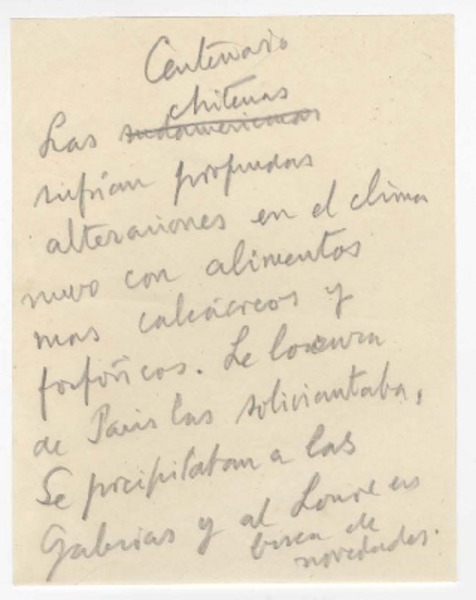 Centenario
chilenas
Las sudamericanas
sufrían profundas
alteraciones en el clima
nuevo con alimentos
mas calcáreos y
fosfóricos. Le locura
de Paris las soliviantaba,
Se precipitaban a las
Galerias y al Louvre en
busca de
novedades.